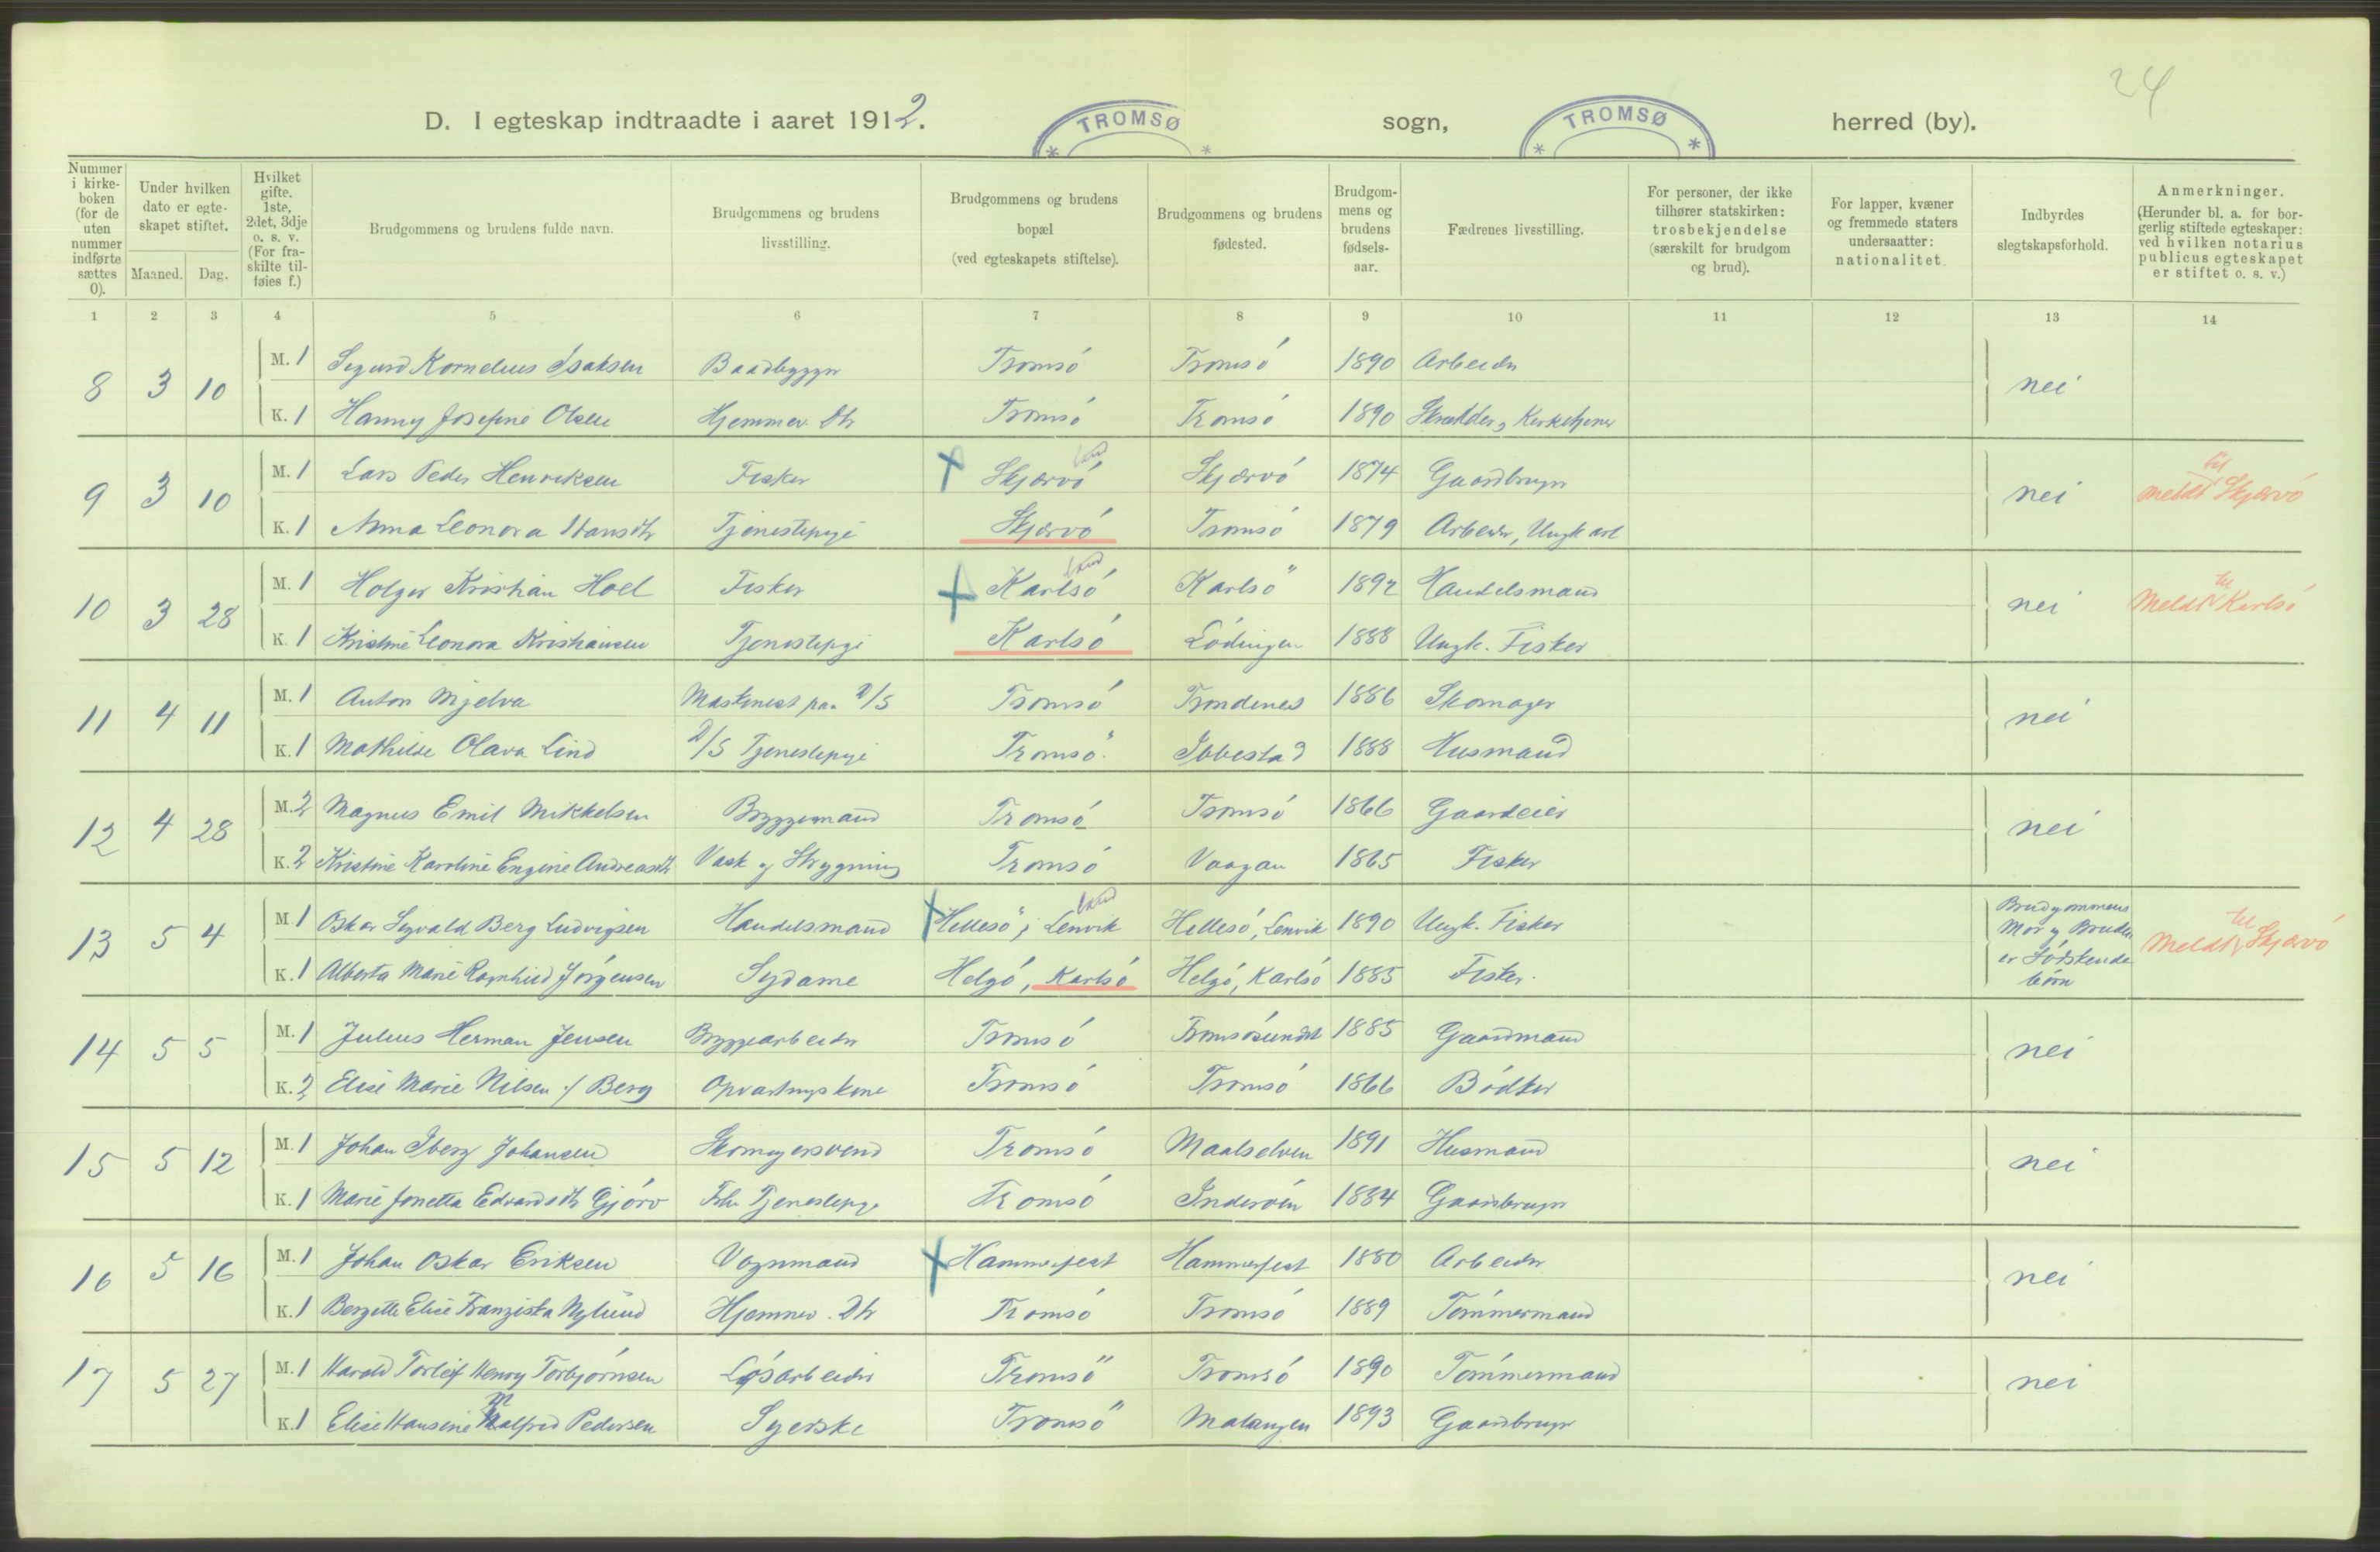 24
D. I egteskap indtraadte i aaret 1912. TROMSØ sogn, TROMSØ herred (by).
Nummer i kirke-boken (for de uten nummer indførte sættes 0).
Under hvilken dato er egte-skapet stiftet.
Maaned. Dag.
Hvilket gifte. 1ste, 2det, 3dje o. s. v. (For fra-skilte til-føies f.)
Brudgommens og brudens fulde navn.
Brudgommens og brudens livsstilling.
Brudgommens og brudens bopæl (ved egteskapets stiftelse).
Brudgommens og brudens fødested.
Brudgom-mens og brudens fødsels-aar.
Fædrenes livsstilling.
For personer, der ikke tilhører statskirken: trosbekjendelse (særskilt for brudgom og brud).
For lapper, kvæner og fremmede staters undersaatter: nationalitet.
Indbyrdes slegtskapsforhold.
Anmerkninger. (Herunder bl. a. for bor-gerlig stiftede egteskaper: ved hvilken notarius publicus egteskapet er stiftet o. s. v.)
1 2 3 4 5 6 7 8 9 10 11 12 13 14
8 3 10 M. 1 Sigurd Kornelius Isaksen Baadbygger Tromsó Tromsó 1890 Arbeider nei
K. 1 Hanny Josefine Olsen Hjemmev. Dtr Tromsó Tromsó 1890 Skrædder, Kirketjener
9 3 10 M. 1 Lars Peder Henriksen Fisker Skjærvó land Skjærvó 1874 Gaardbruger nei meldt til Skjærvó
K. 1 Anna Leonora Hansdtr Tjenestepige Skjærvó Tromsó 1879 Arbeider, Ungkarl
10 3 28 M. 1 Holger Kristian Hoel Fisker Karlsó land Karlsö 1892 Handelsmand nei Meldt til Karlsó
K. 1 Kristine Leonora Kristiansen Tjenestepige Karlsó Lódingen 1888 Ungk. Fisker
11 4 11 M. 1 Anton Mjelva Maskinist paa D/S Tromsó Trondenes 1886 Skomager nei
K. 1 Mathilde Olava Lind D/S Tjenestepige Tromsö Ibbestad 1888 Husmand
12 4 28 M. 2 Magnus Emil Mikkelsen Bryggemand Tromsó Tromsó 1866 Gaardeier nei
K. 2 Kristine Karoline Engine Andreasdtr Vask og Strygning Tromsó Vaagan 1865 Fisker
13 5 4 M. 1 Oskar Sigvald Berg Ludvigsen Handelsmand Hellesö, Lenvik land Hellesó, Lenvik 1890 Ungk. Fisker Brudgommens Mor og Bruden er Sødskende børn Meldt til Skjærvó
K. 1 Alberta Marie Ragnhild Jórgensen Sydame Helgó, Karlsó Helgó, Karlsó 1885 Fisker.
14 5 5 M. 1 Julius Herman Jensen Bryggearbeider Tromsó Tromsósundet 1885 Gaardmand nei
K. 2 Elise Marie Nilsen f/ Berg Opvartningskone Tromsó Tromsó 1866 Bódker
15 5 12 M. 1 Johan Iberg Johansen Skomagersvend Tromsó Maalselven 1891 Husmand nei
K. 1 Marie Jonetta Edvardsdtr Gjórv Fhv. Tjenestepige Tromsó Inderóen 1884 Gaardbruger
16 5 16 M. 1 Johan Oskar Eriksen Vognmand Hammerfest Hammerfest 1880 Arbeider nei
K. 1 Bergette Elise Franziska Nylund Hjemmev. Dtr Tromsó Tromsó 1889 Tómmermand
17 5 27 M. 1 Harald Torleif Henry Torbjórnsen Lósarbeider Tromsö Tromsó 1890 Tómmermand nei
K. 1 Elise Hansine Malfrid Pedersen Syerske Tromsö Malangen 1893 Gaardbruger